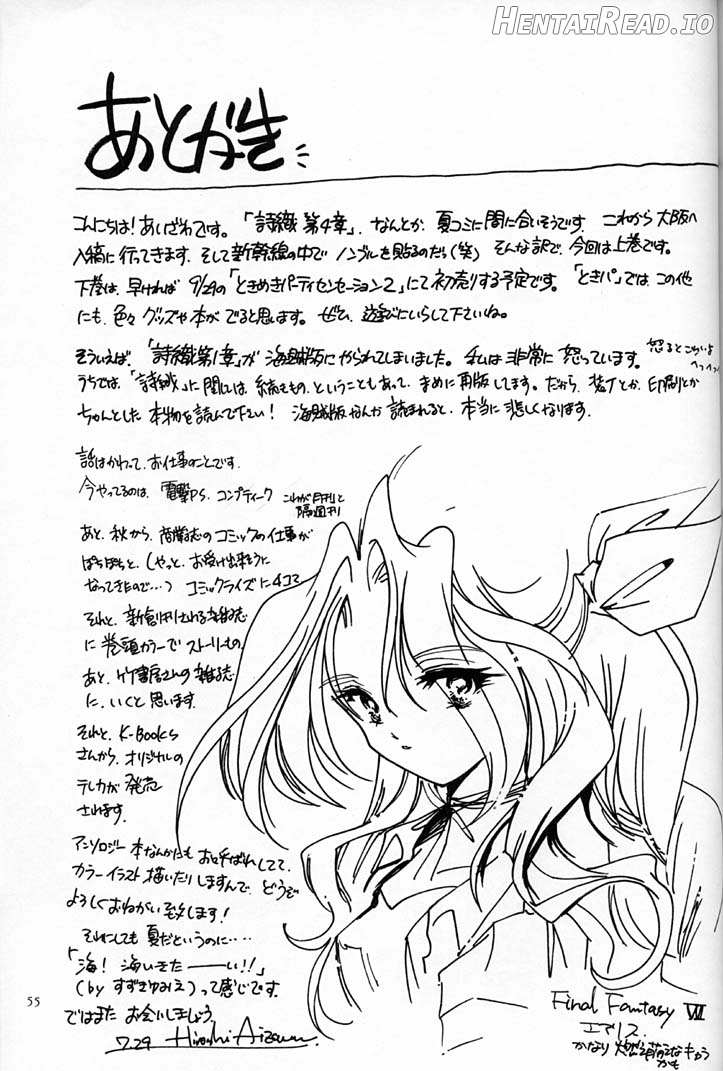 HENTAIREAD.IO
あとがき
こんにちは!あいざわです。「詩織 第4章」、なんとか、夏コミに間に合いそうです。これから大阪へ
入稿に行ってきます。そして新幹線の中でノンブルを貼るのだら(笑) そんな訳で、今回は上巻です。
下巻は、早ければ 9/29の「ときめきパーティセンセーション2」にて初売りする予定です。「ときパ」では、この他
にも、色々グッズや本がでると思います。ぜひ、遊びにいらして下さいね。
そういえば、「詩織第1章」が海賊版にやられてしまいました。私は非常に怒っています。
怒るとこわいよ
へっへっへっ
うちでは、「詩織」に関しては、続きもの、ということもあって、まめに再版します。だから、装丁とか、印刷とか
ちゃんとした本物を読んで下さい! 海賊版なんか読まれると、本当に悲しくなります。
話はかわって、お仕事のことです。
今やってるのは、電撃PS、コンプティーク
これが月刊と
隔週刊
あと、秋から、商業誌のコミックの仕事が
ぼちぼちと、(やっと、お受け出来そうに
なってきたので…) コミックライズに4コマ
それと、新創刊される雑誌
に巻頭カラーでストーリーもの、
あと、竹書房さんの雑誌
に、いくと思います。
それと、K-Books
さんから、オリジナルの
テレカが発売
されます。
アンソロジー本なんかにもお呼ばれしてて、
カラーイラスト描いたりしますんで、どうぞ
よろしくおねがい致します!
それにしても夏だというのに‥‥
「海! 海いきたーーい!!」
(by すずきゆみえ)って感じです。
ではまたお会いしましょう
7.29 Hiroshi Aizawa.
Final Fantasy VII
エアリス.
かなり燃え萌えなキャラ
かも
55